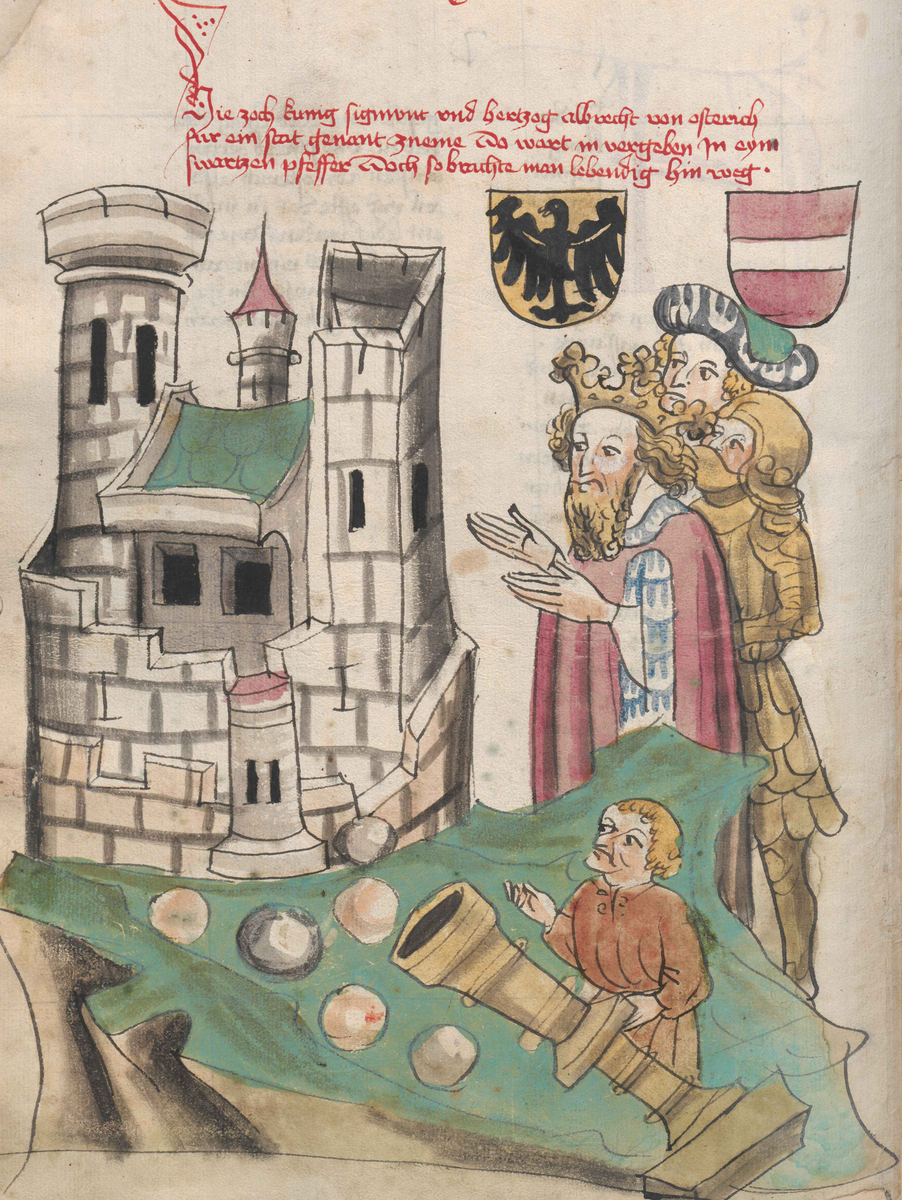 Hie zoch kunig sigmunt vnd hertzog albrecht von osterich
fur ein stat genant zneme Do wart in vergeben In eym
swartzen pfeffer Doch so brachte man lebendig hin weg .